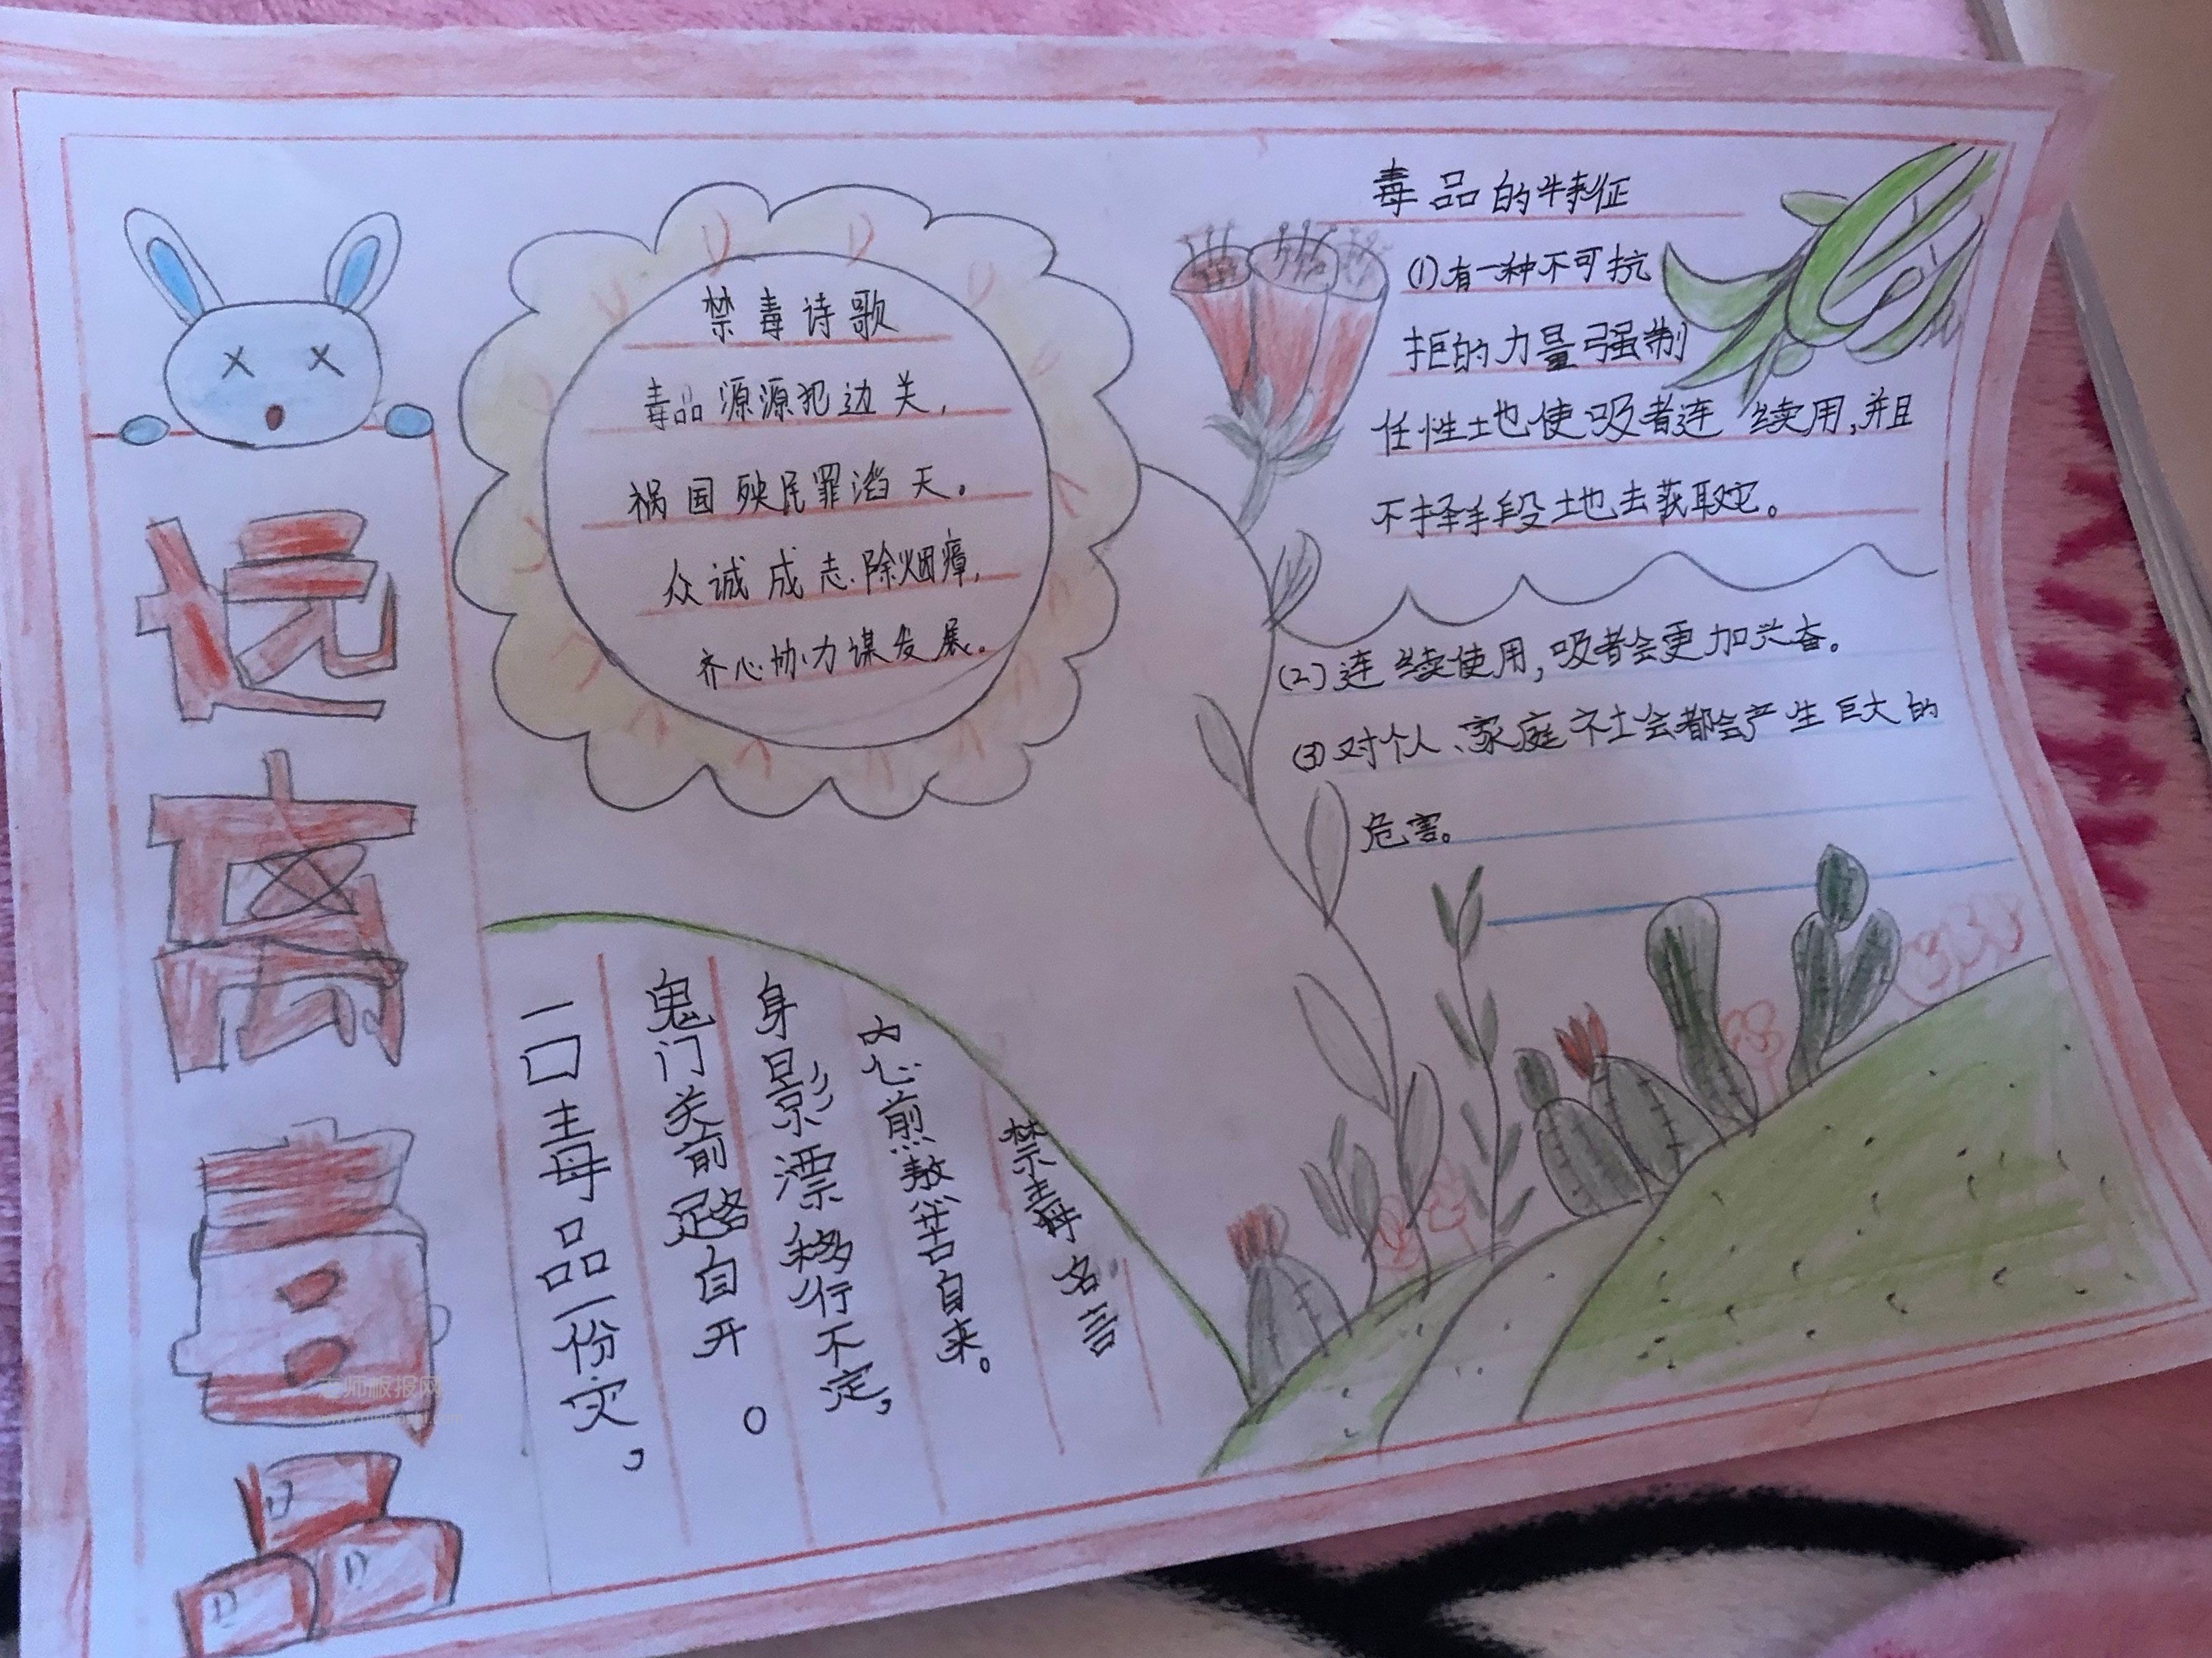 远离毒品
禁毒诗歌
毒品源源犯边关,
祸国殃民罪滔天。
众诚成志除烟瘴,
齐心协力谋发展。
毒品的特征
(1)有一种不可抗
拒的力量强制
任性地使吸者连续用,并且
不择手段地去获取它。
(2)连续使用,吸者会更加兴奋。
(3)对个人、家庭社会都会产生巨大的
危害。
禁毒名言
一口毒品一份灾,
鬼门关前路自开。
身影漂移行不定,
内心煎熬苦自来。